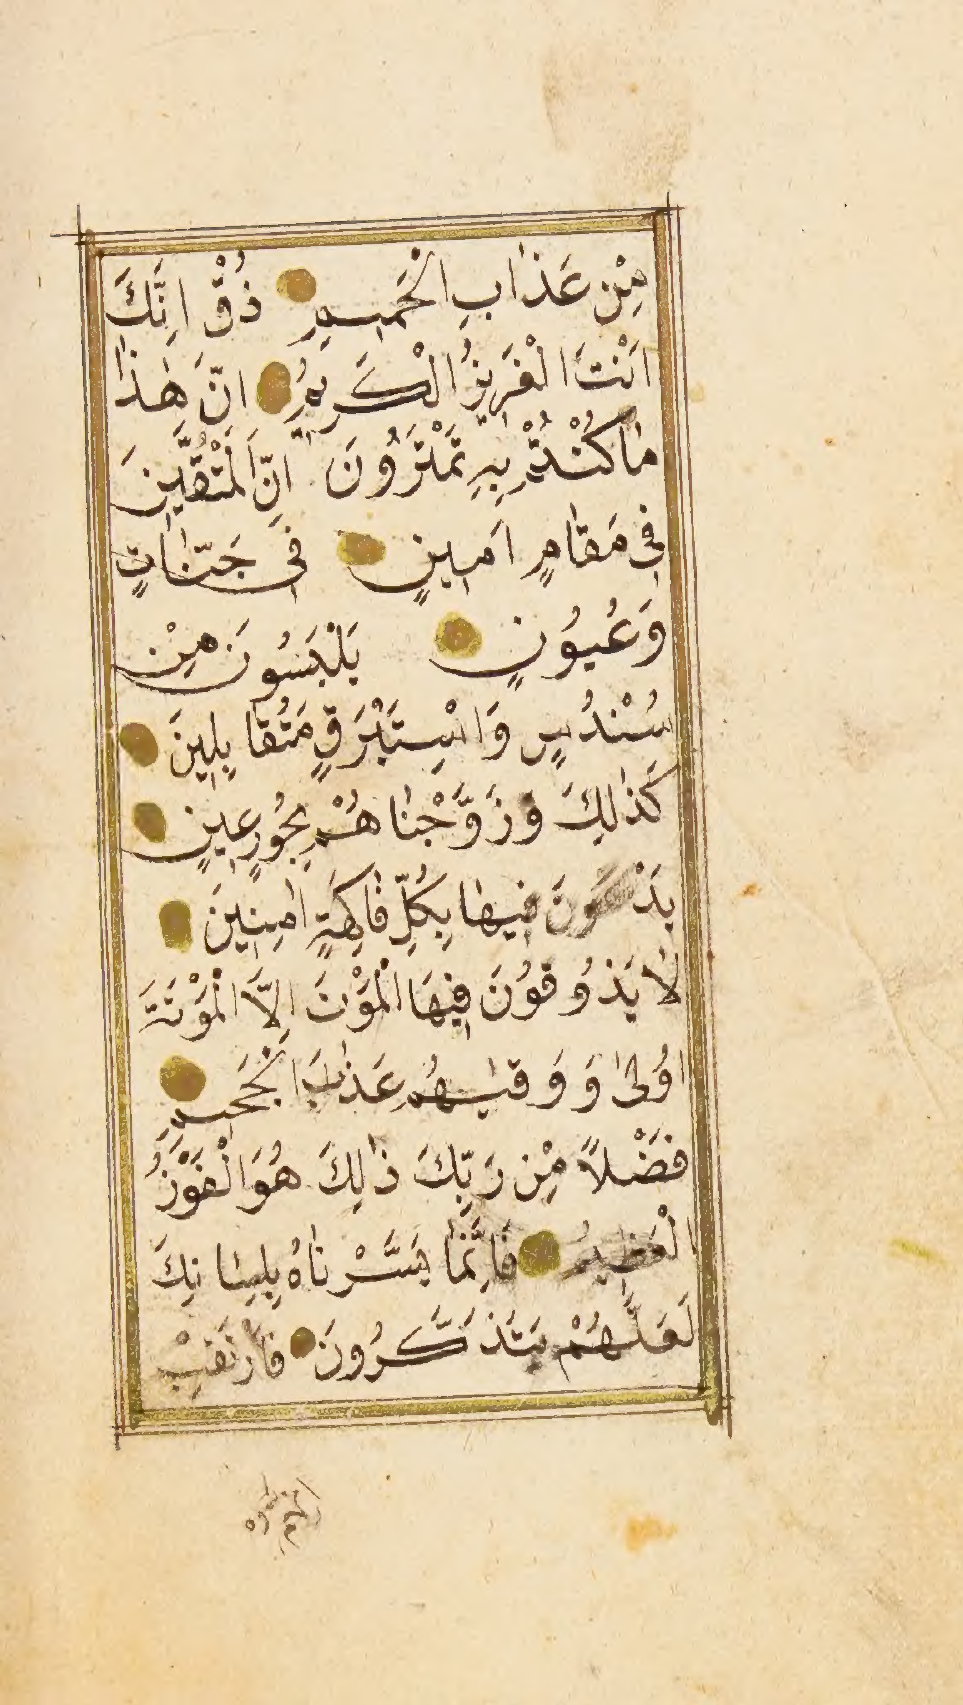 مِنْ عَذَابِ الْحَمِيمِ ذُقْ اِنَّكَ
اَنْتَ الْعَزِيزُ الْكَرِيمُ اِنَّ هٰذَا
مَا كُنْتُمْ بِهِ تَمْتَرُونَ اِنَّ الْمُتَّقِينَ
فِى مَقَامٍ اَمِينٍ فِى جَنَّاتٍ
وَعُيُونٍ يَلْبَسُونَ مِنْ
سُنْدُسٍ وَاسْتَبْرَقٍ مُتَقَابِلِينَ
كَذٰلِكَ وَزَوَّجْنَاهُمْ بِحُورٍ عِينٍ
يَدْعُونَ فِيهَا بِكُلِّ فَاكِهَةٍ اٰمِنِينَ
لَا يَذُوقُونَ فِيهَا الْمَوْتَ اِلَّا الْمَوْتَةَ
اُولٰى وَ وَقٰيهُمْ عَذَابَ الْجَحِيمِ
فَضْلًا مِنْ رَبِّكَ ذٰلِكَ هُوَ الْفَوْزُ
الْعَظِيمُ فَاِنَّمَا يَسَّرْنَاهُ بِلِسَانِكَ
لَعَلَّهُمْ يَتَذَكَّرُونَ فَارْتَقِبْ